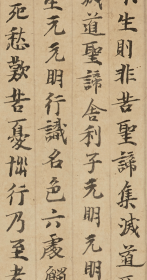 生則非苦聖諦集滅道
滅道聖諦舍利子无明无明
生无无明行識名色六處觸
死愁歎苦憂惱行乃至老